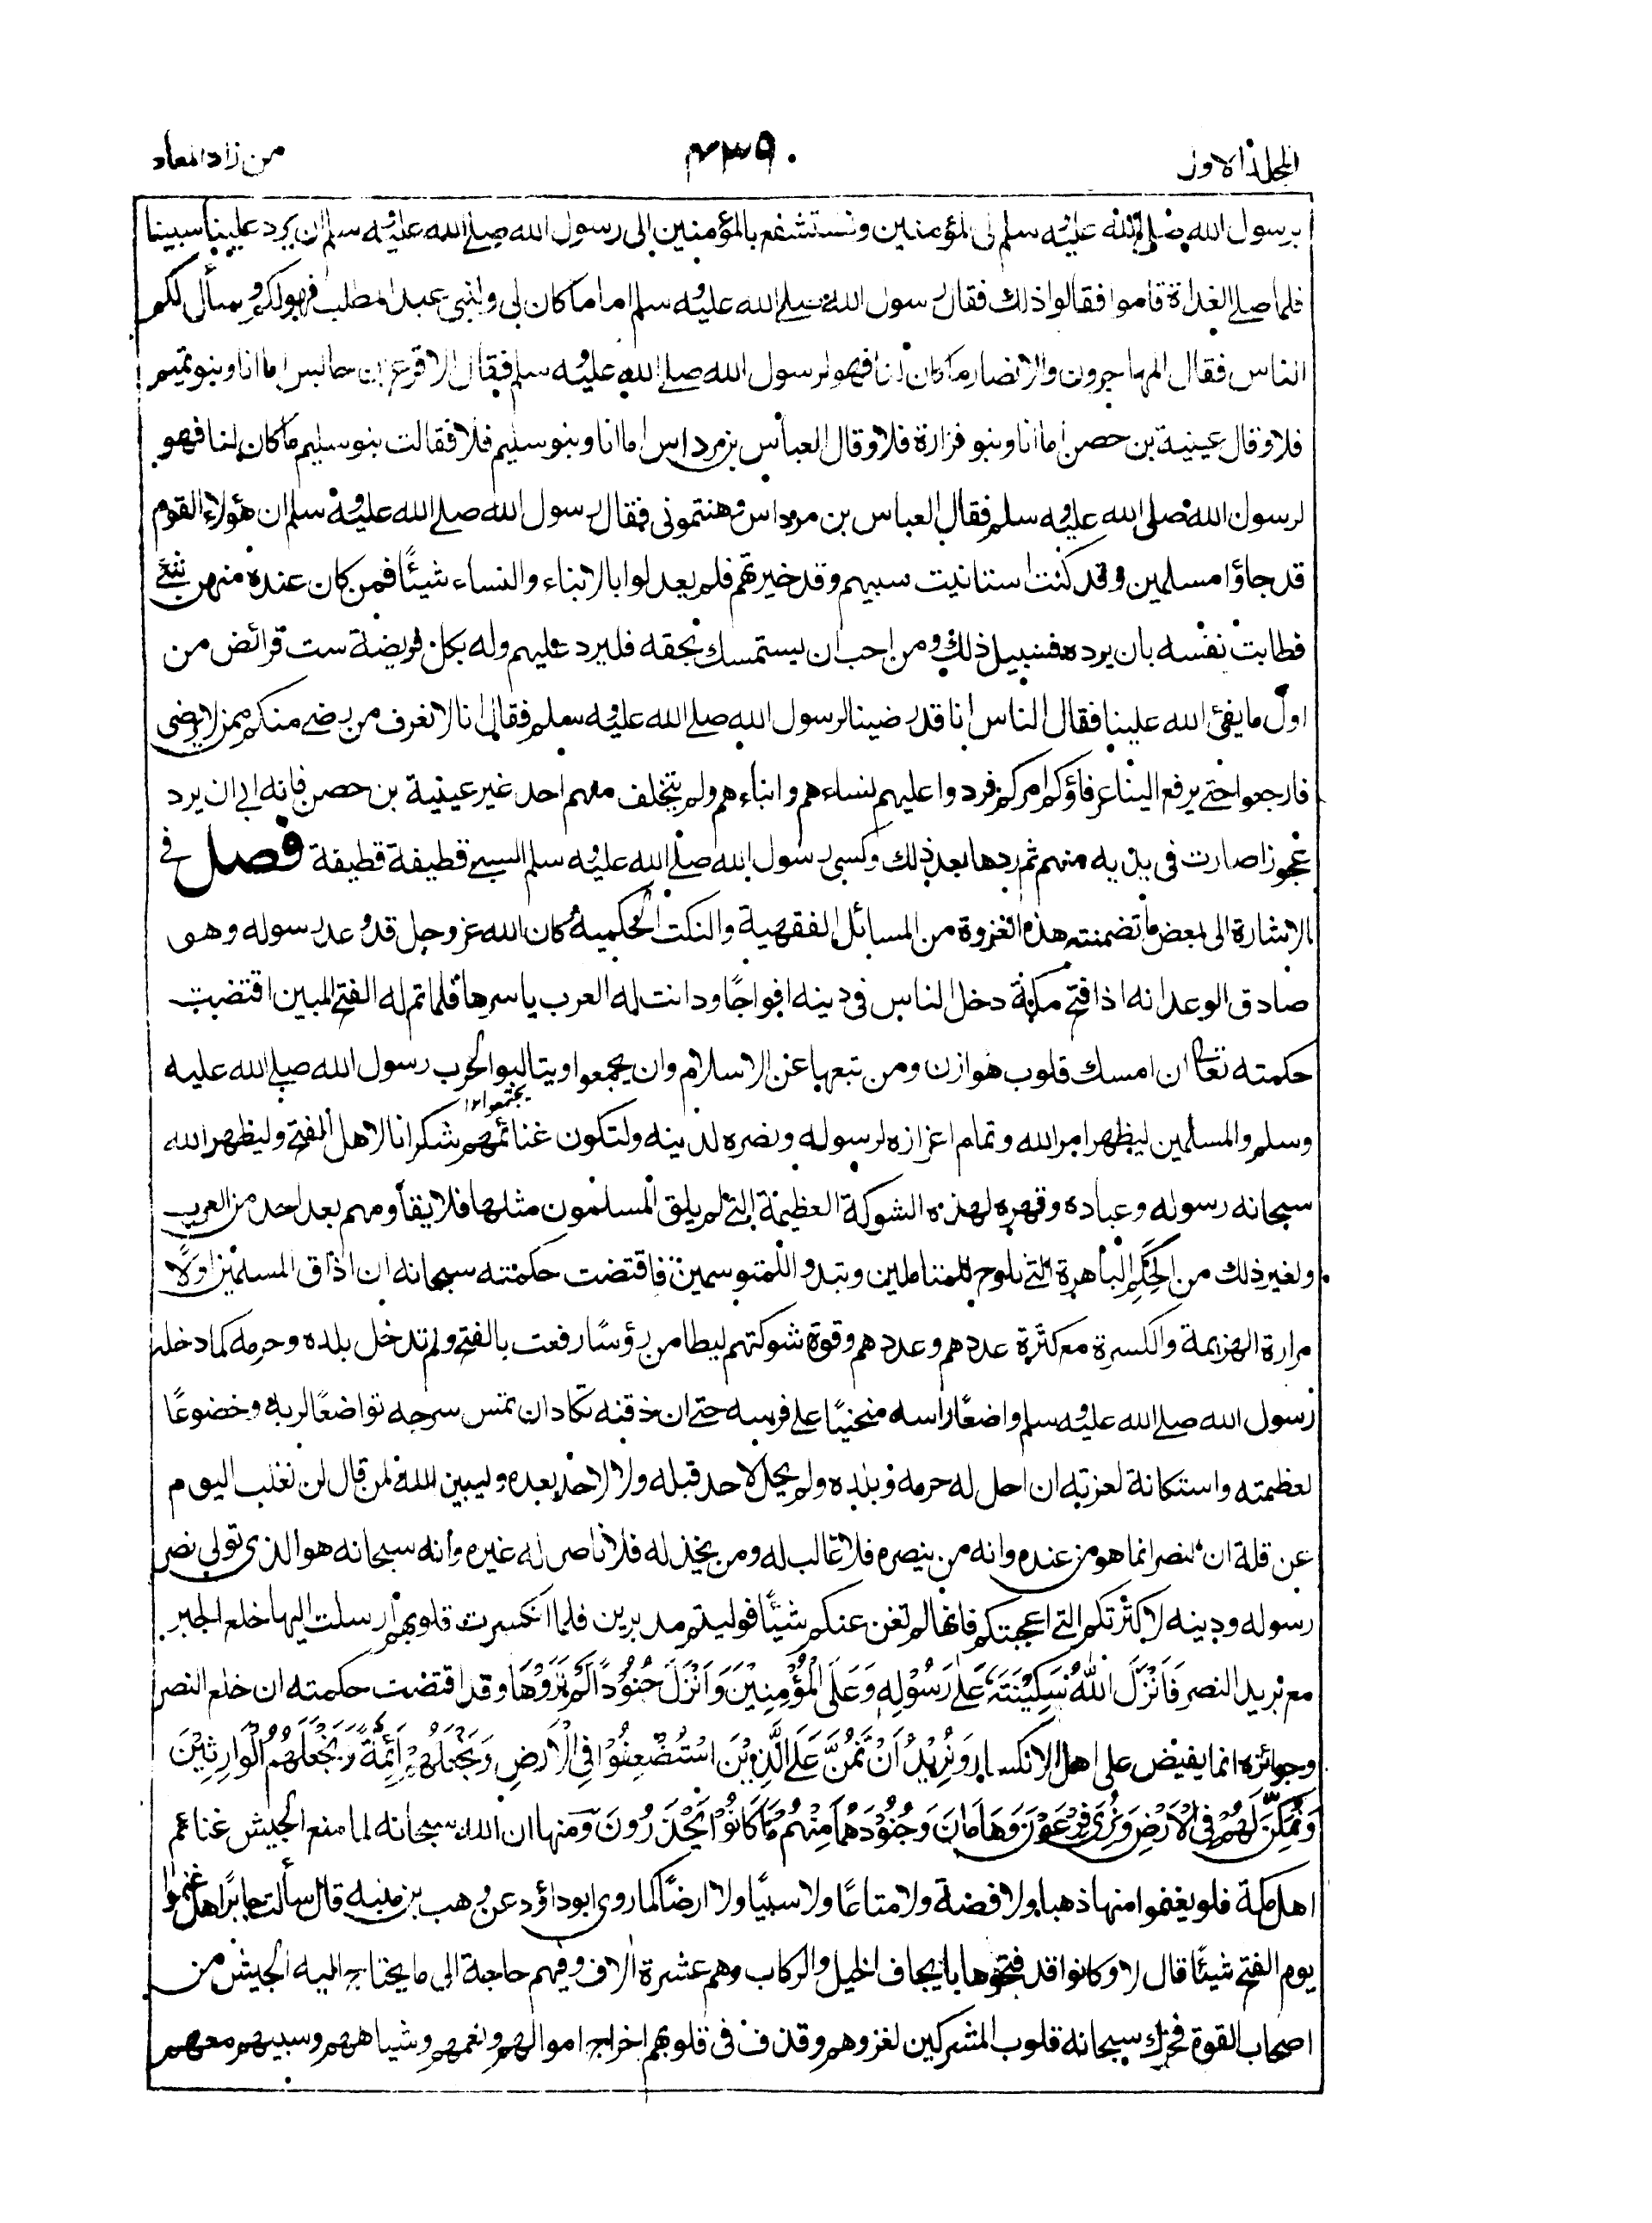 المجلد الاول
٤٣٥
من زاد المعاد
برسول الله صلى الله عليه وسلم الى المؤمنين ونستشفع بالمؤمنين الى رسول الله صلے الله عليه وسلم ان يرد علينا سبينا
فلما صلے الغداة قاموا فقالوا ذلك فقال رسول الله صلے الله عليه وسلم اما ما كان لى ولبنى عبد المطلب فهو لكم وسأسأل لكم
الناس فقال المهاجرون والانصار ما كان لنا فهو لرسول الله صلے الله عليه وسلم فقال الاقرع بن حابس اما انا وبنو تميم
فلا وقال عيينية بن حصن اما انا وبنو فزارة فلا وقال العباس بن مرداس اما انا وبنو سليم فلا فقالت بنو سليم ما كان لنا فهو
لرسول الله صلى الله عليه وسلم فقال العباس بن مرداس وهنتمونى فقال رسول الله صلے الله عليه وسلم ان هؤلاء القوم
قد جاؤا مسلمين وقد كنت استانيت سبيهم وقد خيرتهم فلم يعدلوا بالابناء والنساء شيئًا فمن كان عنده منهن شئ
فطابت نفسه بان يرده فسبيل ذلك ومن احب ان يستمسك بحقه فليرد عليهم وله بكل فريضة ست فرائض من
اول ما يفئ الله علينا فقال الناس انا قد رضينا لرسول الله صلے الله عليه وسلم فقال انا لا نعرف من رضے منكم ممن لا يرضى
فارجعوا حتے يرفع الينا عرفاؤكم امركم فردوا عليهم نساءهم وابناءهم ولم يتخلف منهم احد غير عيينية بن حصن فانه ابى ان يرد
عجوزا صارت فى يديه منهم ثم ردها بعد ذلك وكسى رسول الله صلے الله عليه وسلم السبے قطيفة قطيفة فصل فے
الاشارة الى بعض ما تضمنته هذه الغزوة من المسائل الفقهية والنكت الحكمية كان الله عز وجل قد وعد رسوله وهو
صادق الوعد انه اذا فتح مكة دخل الناس فى دينه افواجًا ودانت له العرب باسرها فلما تم له الفتح المبين اقتضت
حكمته تعالى ان امسك قلوب هوازن ومن تبعها عن الاسلام وان يجمعوا ويتالبوا لحرب رسول الله صلے الله عليه
يجتمعوا
وسلم والمسلمين ليظهر امر الله وتمام اعزازه لرسوله ونصره لدينه ولتكون غنائمهم شكرانا لاهل الفتح وليظهر الله
سبحانه رسوله وعباده وقهره لهذه الشوكة العظيمة التے لم يلق المسلمون مثلها فلا يقاومهم بعد احد من العرب
ولغير ذلك من الحِكَمِ الباهرة التے تلوح للمتاملين وتبدو للمتوسمين فاقتضت حكمته سبحانه ان اذاق المسلمين اولًا
مرارة الهزيمة والكسرة مع كثرة عددهم وعددهم وقوة شوكتهم ليطامن رؤسًا رفعت بالفتح ولم تدخل بلده وحرمه كما دخله
رسول الله صلے الله عليه وسلم واضعًا راسه منحنيًا على فرسه حتے ان ذقنه تكاد ان تمس سرجه تواضعًا لربه وخضوعًا
لعظمته واستكانة لعزته ان احل له حرمه وبلده ولم يحل لاحد قبله ولا لاحد بعده وليبين الله لمن قال لن نغلب اليوم
عن قلة ان النصر انما هو من عنده وانه من ينصره فلا غالب له ومن يخذله فلا ناصر له غيره وانه سبحانه هو الذى تولى نصر
رسوله ودينه لا كثرتكم التے اعجبتكم فانها لم تغن عنكم شيئًا فوليتم مدبرين فلما انكسرت قلوبهم ارسلت اليها خلع الجبر
مع بريد النصر فَاَنْزَلَ اللّٰهُ سَكِيْنَتَهٗ عَلٰے رَسُوْلِهٖ وَعَلَى الْمُؤْمِنِيْنَ وَاَنْزَلَ جُنُوْدًا لَمْ تَرَوْهَا وقد اقتضت حكمته ان خلع النصر
وجوائزه انما يفيض على اهل الانكسار وَنُرِيْدُ اَنْ نَّمُنَّ عَلَى الَّذِيْنَ اسْتُضْعِفُوْا فِى الْاَرْضِ وَنَجْعَلَهُمْ اَئِمَّةً وَّنَجْعَلَهُمُ الْوَارِثِيْنَ
وَنُمَكِّنَ لَهُمْ فِى الْاَرْضِ وَنُرِىَ فِرْعَوْنَ وَهَامَانَ وَجُنُوْدَهُمَا مِنْهُمْ مَّا كَانُوْا يَحْذَرُوْنَ ومنها ان الله سبحانه لما منع الجيش غنائم
اهل مكة فلم يغنموا منها ذهبا ولا فضة ولا متاعًا ولا سبيًا ولا ارضًا كما روى ابو داؤد عن وهب بن منبه قال سألت جابرًا هل غنموا
يوم الفتح شيئًا قال لا وكانوا قد فتحوها بايجاف الخيل والركاب وهم عشرة الاف وفيهم حاجة الى ما يحتاج اليه الجيش من
اصحاب القوة فحرك سبحانه قلوب المشركين لغزوهم وقذف فى قلوبهم اخراج اموالهم ونعمهم وشياههم وسبيهم معهم